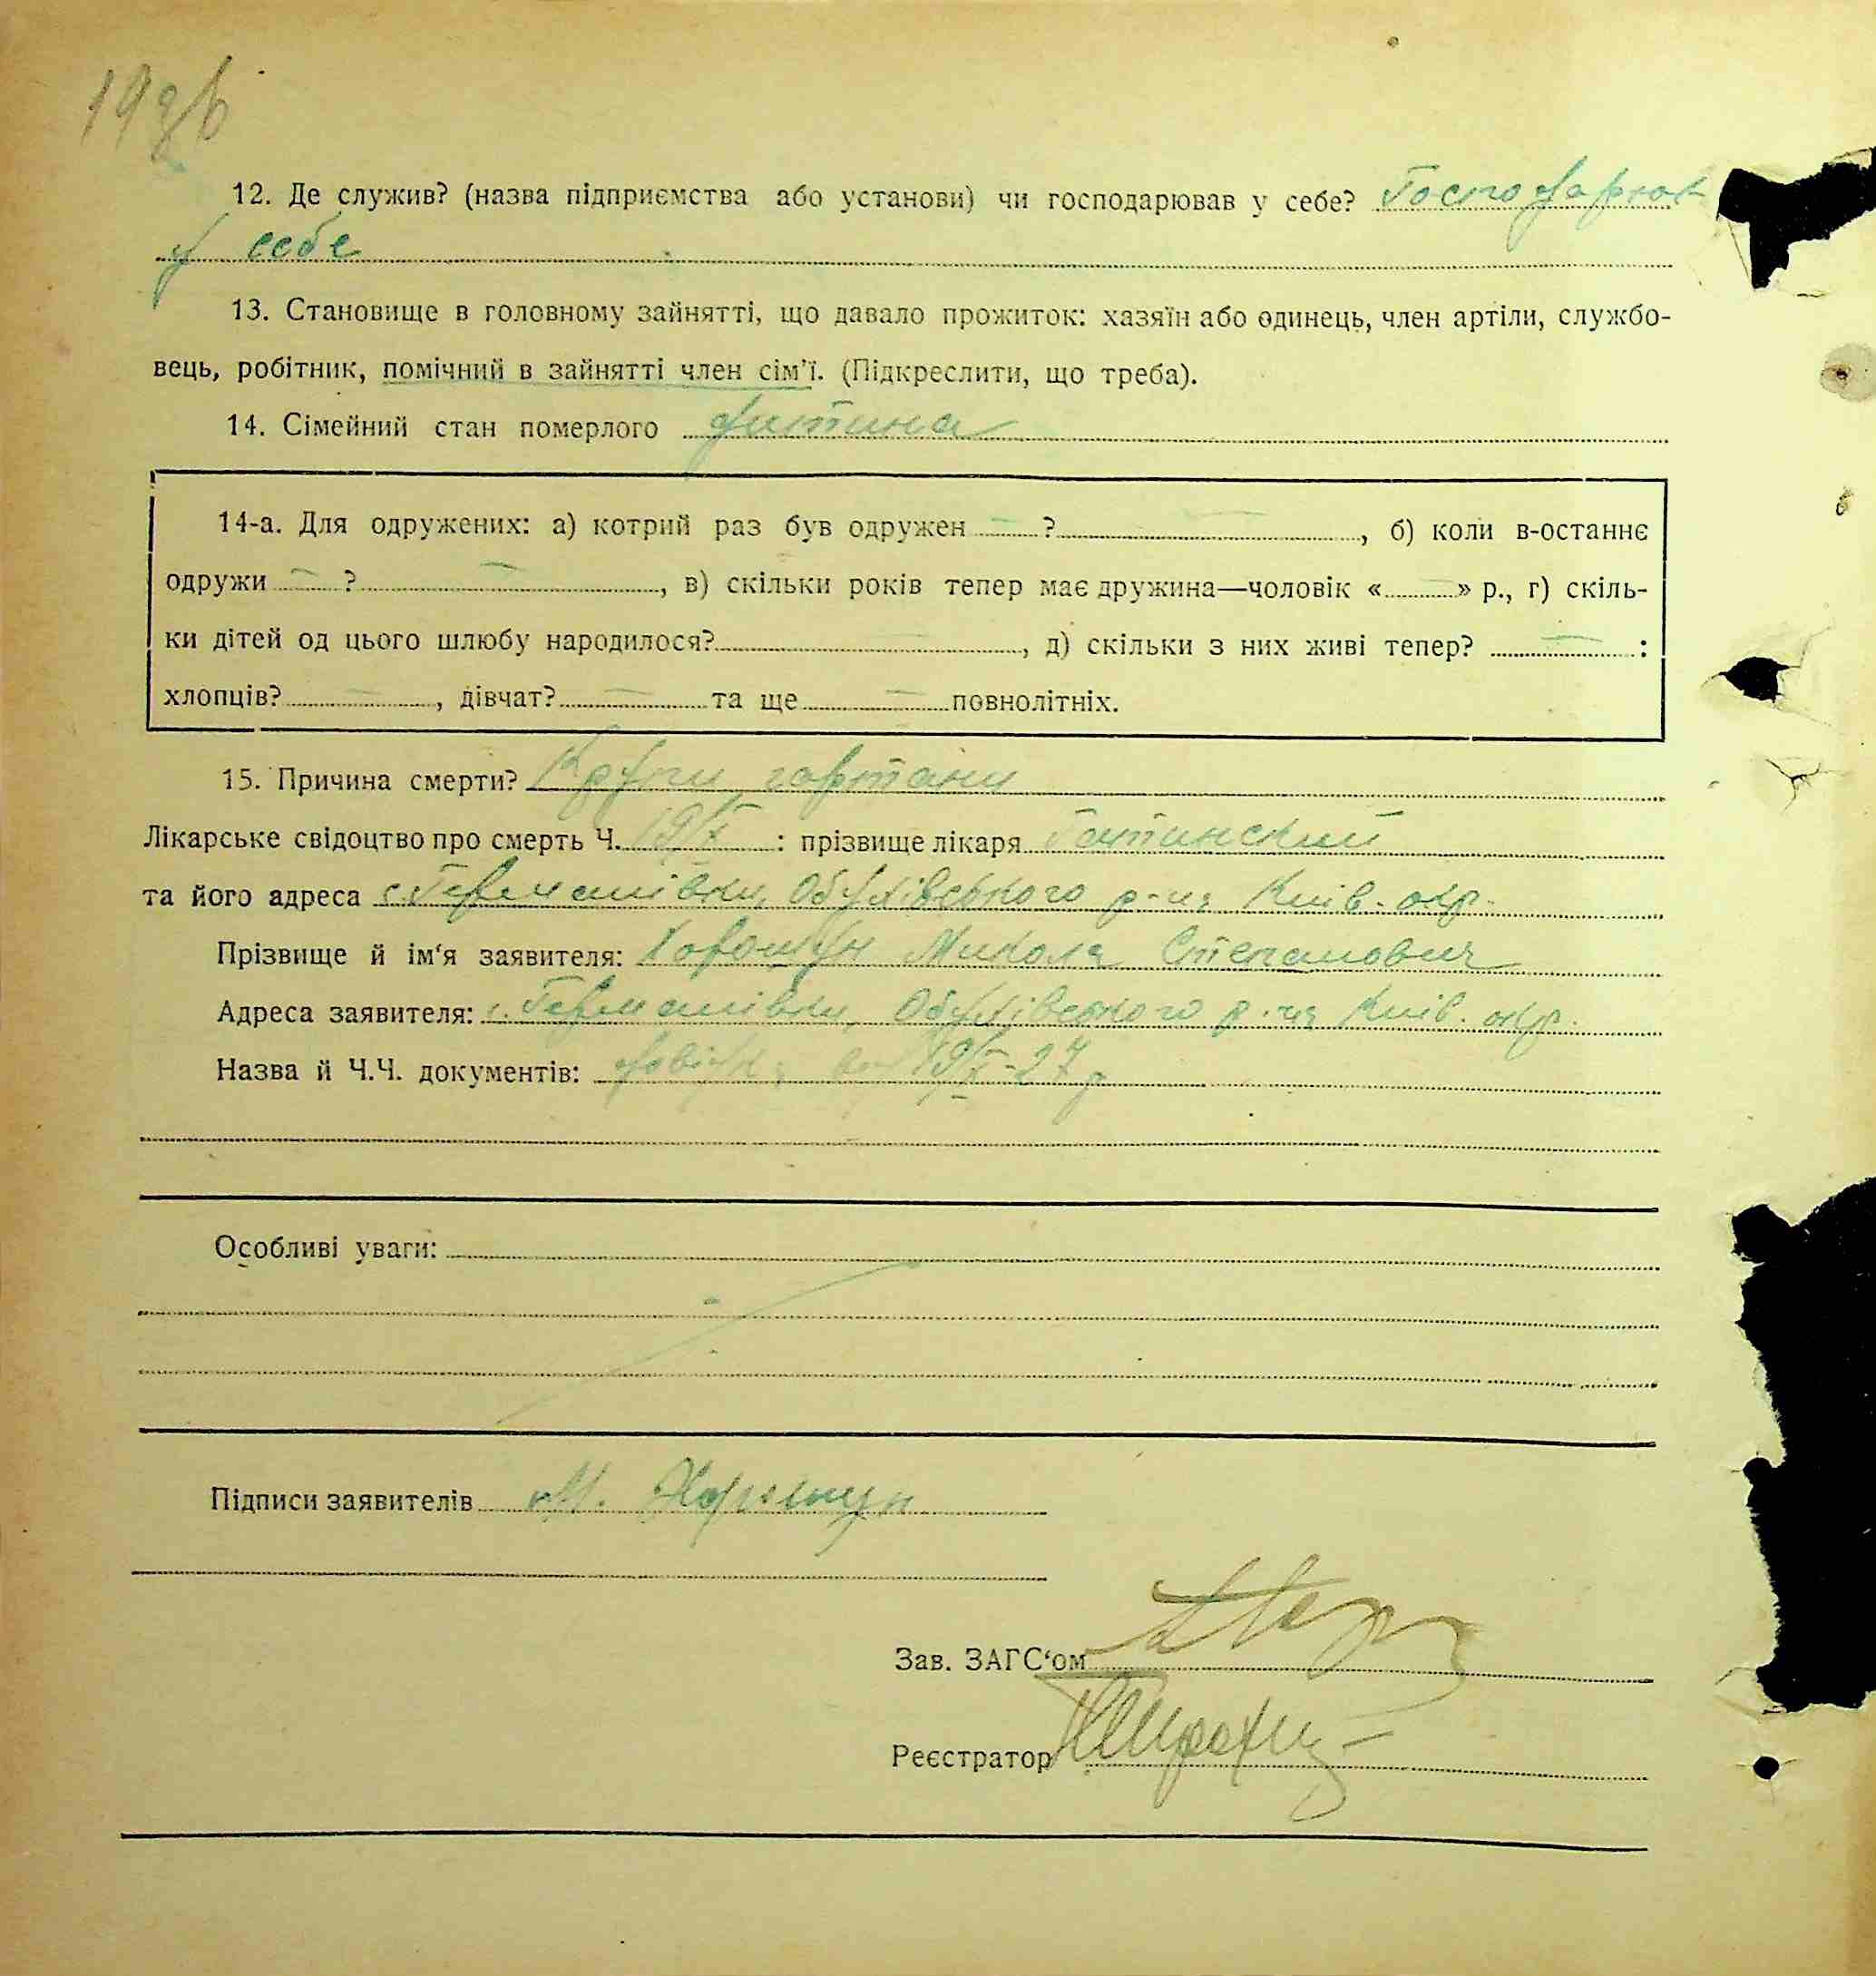 12. Де служив? (назва підприємства або установи) чи господарював у себе? Господарював
у себе
13. Становище в головному зайнятті, що давало прожиток: хазяїн або одинець, член артіли, службо-
вець, робітник, помічний в зайнятті член сім'ї. (Підкреслити, що треба).
14. Сімейний стан померлого дитина
14-а. Для одружених: а) котрий раз був одружен — ? —, б) коли в-останнє
одружи — ? —, в) скільки років тепер має дружина—чоловік « — » р., г) скіль-
ки дітей од цього шлюбу народилося? —, д) скільки з них живі тепер? — :
хлопців? —, дівчат? — та ще — повнолітніх.
15. Причина смерти? Круп гортани
Лікарське свідоцтво про смерть Ч. 19/X : прізвище лікаря
та його адреса с. Германівка, Обухівського р-на Київ. окр.
Прізвище й ім'я заявителя: Хорошун Микола Степанович
Адреса заявителя: с. Германівка, Обухівського р-на Київ. окр.
Назва й Ч.Ч. документів: 19/X-27 р
Особливі уваги:
Підписи заявителів М. Хорошун
Зав. ЗАГС'ом
Реєстратор